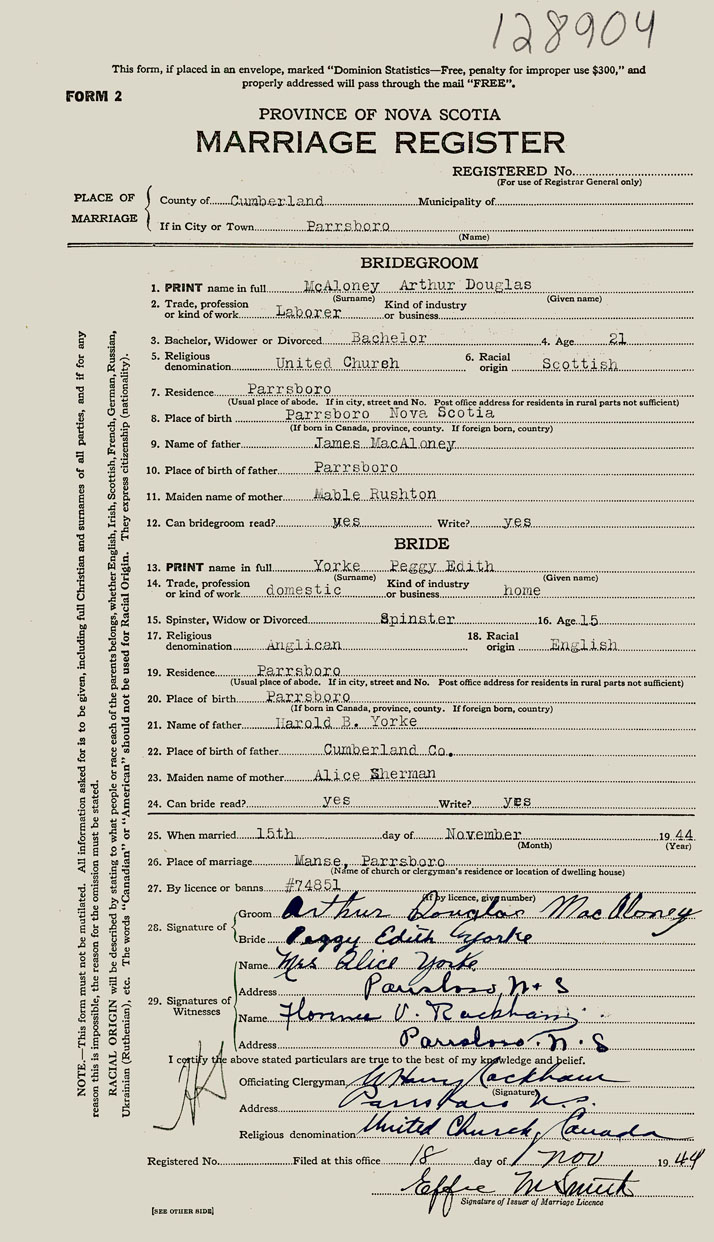 128904
This form, if placed in an envelope, marked "Dominion Statistics—Free, penalty for improper use $300," and
properly addressed will pass through the mail "FREE".
FORM 2
PROVINCE OF NOVA SCOTIA
MARRIAGE REGISTER
REGISTERED No.
(For use of Registrar General only)
PLACE OF MARRIAGE
County of Cumberland Municipality of
If in City or Town Parrsboro
(Name)
BRIDEGROOM
1. PRINT name in full McAloney Arthur Douglas
(Surname) (Given name)
2. Trade, profession or kind of work Laborer Kind of industry or business
3. Bachelor, Widower or Divorced Bachelor 4. Age 21
5. Religious denomination United Church 6. Racial origin Scottish
7. Residence Parrsboro
(Usual place of abode. If in city, street and No. Post office address for residents in rural parts not sufficient)
8. Place of birth Parrsboro Nova Scotia
(If born in Canada, province, county. If foreign born, country)
9. Name of father James MacAloney
10. Place of birth of father Parrsboro
11. Maiden name of mother Mable Rushton
12. Can bridegroom read? yes Write? yes
BRIDE
13. PRINT name in full Yorke Peggy Edith
(Surname) (Given name)
14. Trade, profession or kind of work domestic Kind of industry or business home
15. Spinster, Widow or Divorced Spinster 16. Age 15
17. Religious denomination Anglican 18. Racial origin English
19. Residence Parrsboro
(Usual place of abode. If in city, street and No. Post office address for residents in rural parts not sufficient)
20. Place of birth Parrsboro
(If born in Canada, province, county. If foreign born, country)
21. Name of father Harold B. Yorke
22. Place of birth of father Cumberland Co.
23. Maiden name of mother Alice Sherman
24. Can bride read? yes Write? yes
25. When married 15th day of November 1944
(Month) (Year)
26. Place of marriage Manse, Parrsboro
(Name of church or clergyman's residence or location of dwelling house)
27. By licence or banns #74851
(If by licence, give number)
28. Signature of
Groom Arthur Douglas MacAloney
Bride Peggy Edith Yorke
29. Signatures of Witnesses
Name Mrs Alice Yorke
Address Parrsboro, N S
Name V. Rackham
Address Parrsboro. N. S
I certify the above stated particulars are true to the best of my knowledge and belief.
Officiating Clergyman W Harry Rackham
(Signature)
Address Parrsboro N.S.
Religious denomination United Church, Canada
Registered No. Filed at this office 18 day of Nov 1944
Effie M Smith
Signature of Issuer of Marriage Licence
[SEE OTHER SIDE]
NOTE.—This form must not be mutilated. All information asked for is to be given, including full Christian and surnames of all parties, and if for any
reason this is impossible, the reason for the omission must be stated.
RACIAL ORIGIN will be described by stating to what people or race each of the parents belongs, whether English, Irish, Scottish, French, German, Russian,
Ukrainian (Ruthenian), etc. The words "Canadian" or "American" should not be used for Racial Origin. They express citizenship (nationality).